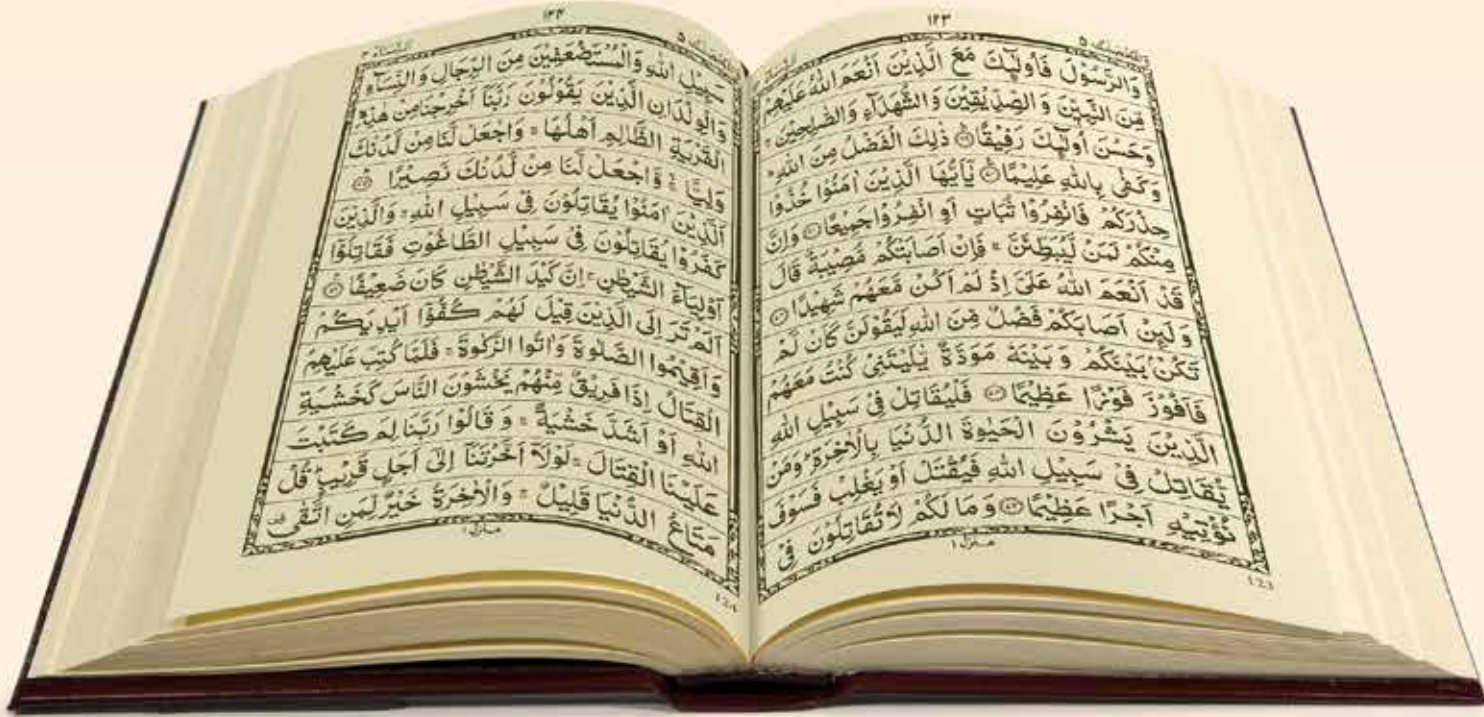 ١٢٣
وَالْمُحْصَنٰتُ ٥
وَالرَّسُوْلَ فَاُولٰٓئِكَ مَعَ الَّذِيْنَ اَنْعَمَ اللّٰهُ عَلَيْهِمْ
مِّنَ النَّبِيّٖنَ وَالصِّدِّيْقِيْنَ وَالشُّهَدَآءِ وَالصّٰلِحِيْنَ ۚ
وَحَسُنَ اُولٰٓئِكَ رَفِيْقًا ۞ ذٰلِكَ الْفَضْلُ مِنَ اللّٰهِ ۭ
وَكَفٰى بِاللّٰهِ عَلِيْمًا ۞ يٰٓاَيُّهَا الَّذِيْنَ اٰمَنُوْا خُذُوْا
حِذْرَكُمْ فَانْفِرُوْا ثُبَاتٍ اَوِ انْفِرُوْا جَمِيْعًا ۞ وَاِنَّ
مِنْكُمْ لَمَنْ لَّيُبَطِّئَنَّ ۚ فَاِنْ اَصَابَتْكُمْ مُّصِيْبَةٌ قَالَ
قَدْ اَنْعَمَ اللّٰهُ عَلَيَّ اِذْ لَمْ اَكُنْ مَّعَهُمْ شَهِيْدًا ۞
وَلَئِنْ اَصَابَكُمْ فَضْلٌ مِّنَ اللّٰهِ لَيَقُوْلَنَّ كَاَنْ لَّمْ
تَكُنْۢ بَيْنَكُمْ وَبَيْنَهٗ مَوَدَّةٌ يّٰلَيْتَنِيْ كُنْتُ مَعَهُمْ
فَاَفُوْزَ فَوْزًا عَظِيْمًا ۞ فَلْيُقَاتِلْ فِيْ سَبِيْلِ اللّٰهِ
الَّذِيْنَ يَشْرُوْنَ الْحَيٰوةَ الدُّنْيَا بِالْاٰخِرَةِ ۭ وَمَنْ
يُّقَاتِلْ فِيْ سَبِيْلِ اللّٰهِ فَيُقْتَلْ اَوْ يَغْلِبْ فَسَوْفَ
نُؤْتِيْهِ اَجْرًا عَظِيْمًا ۞ وَمَا لَكُمْ لَا تُقَاتِلُوْنَ فِيْ
منزل ١
123
١٢٤
النِّسَآء ٤
وَالْمُحْصَنٰتُ ٥
سَبِيْلِ اللّٰهِ وَالْمُسْتَضْعَفِيْنَ مِنَ الرِّجَالِ وَالنِّسَآءِ
وَالْوِلْدَانِ الَّذِيْنَ يَقُوْلُوْنَ رَبَّنَآ اَخْرِجْنَا مِنْ هٰذِهِ
الْقَرْيَةِ الظَّالِمِ اَهْلُهَا ۚ وَاجْعَلْ لَّنَا مِنْ لَّدُنْكَ
وَلِيًّا ۙ وَّاجْعَلْ لَّنَا مِنْ لَّدُنْكَ نَصِيْرًا ۞
اَلَّذِيْنَ اٰمَنُوْا يُقَاتِلُوْنَ فِيْ سَبِيْلِ اللّٰهِ ۚ وَالَّذِيْنَ
كَفَرُوْا يُقَاتِلُوْنَ فِيْ سَبِيْلِ الطَّاغُوْتِ فَقَاتِلُوْٓا
اَوْلِيَآءَ الشَّيْطٰنِ ۚ اِنَّ كَيْدَ الشَّيْطٰنِ كَانَ ضَعِيْفًا ۞
اَلَمْ تَرَ اِلَى الَّذِيْنَ قِيْلَ لَهُمْ كُفُّوْٓا اَيْدِيَكُمْ
وَاَقِيْمُوا الصَّلٰوةَ وَاٰتُوا الزَّكٰوةَ ۚ فَلَمَّا كُتِبَ عَلَيْهِمُ
الْقِتَالُ اِذَا فَرِيْقٌ مِّنْهُمْ يَخْشَوْنَ النَّاسَ كَخَشْيَةِ
اللّٰهِ اَوْ اَشَدَّ خَشْيَةً ۚ وَقَالُوْا رَبَّنَا لِمَ كَتَبْتَ
عَلَيْنَا الْقِتَالَ ۚ لَوْلَآ اَخَّرْتَنَآ اِلٰٓى اَجَلٍ قَرِيْبٍ ۭ قُلْ
مَتَاعُ الدُّنْيَا قَلِيْلٌ ۚ وَالْاٰخِرَةُ خَيْرٌ لِّمَنِ اتَّقٰى
منزل ١
124